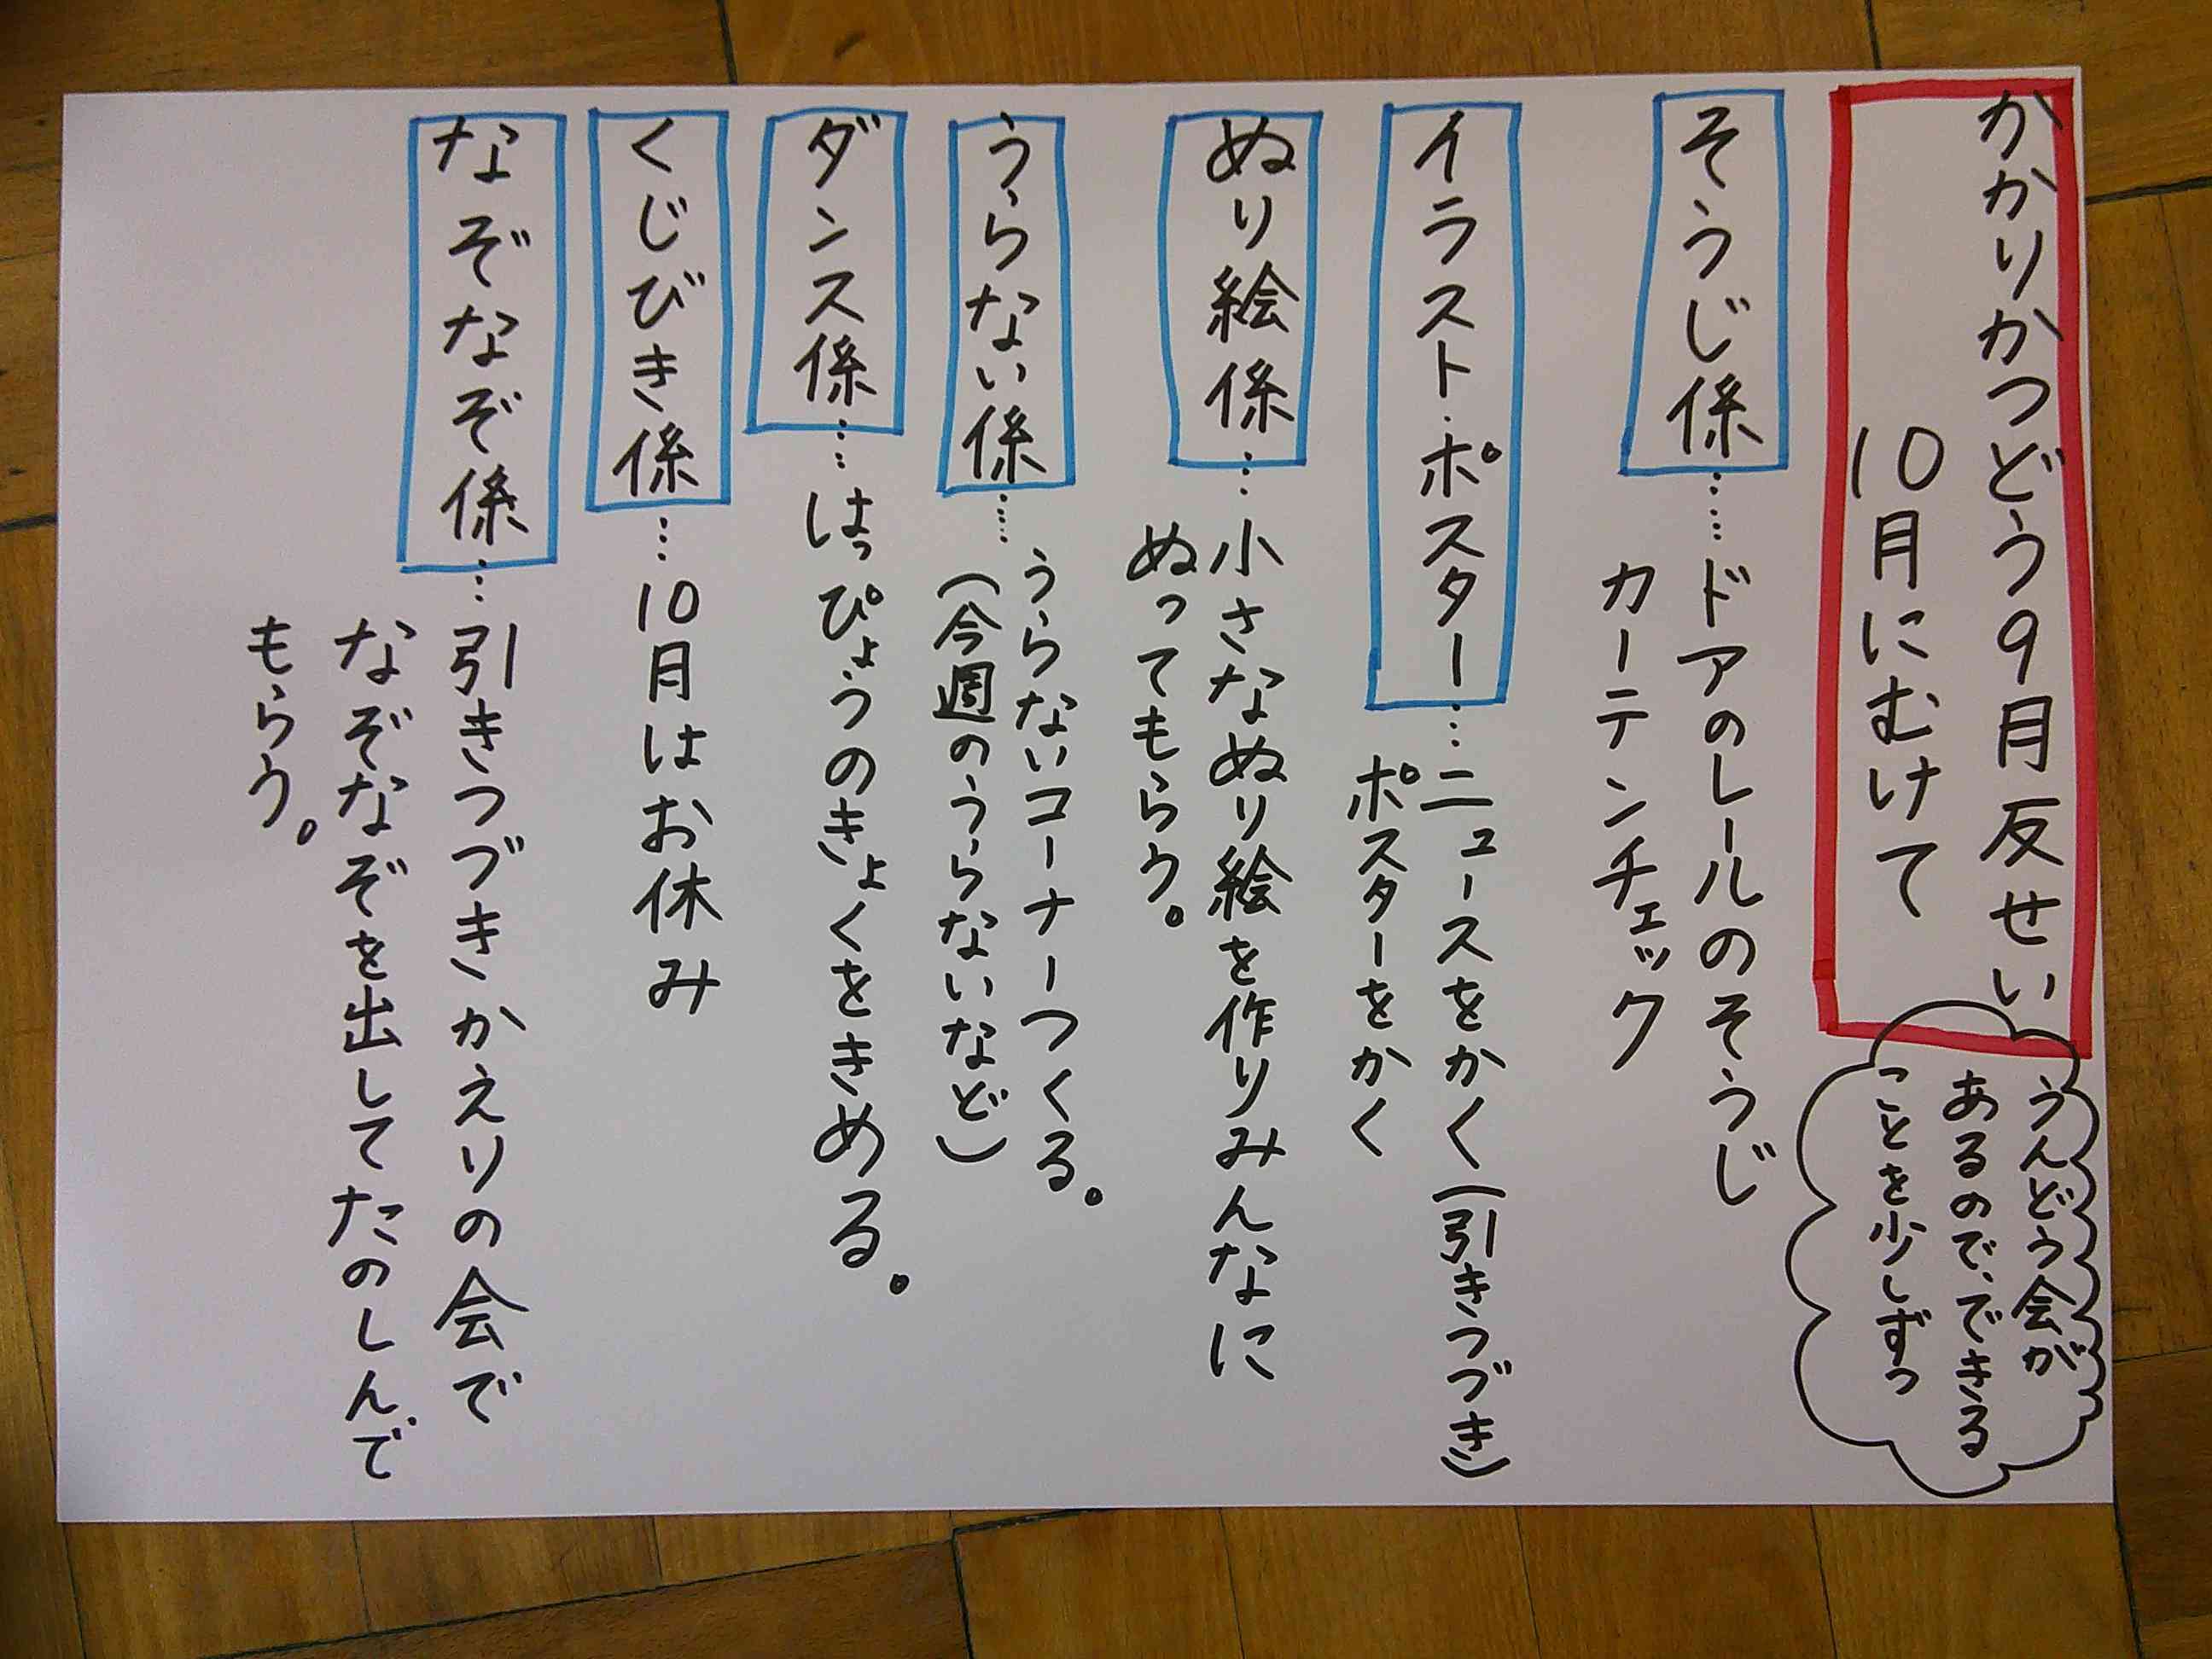 かかりかつどう9月反せい
10月にむけて
うんどう会が
あるので、できる
ことを少しずつ
そうじ係……ドアのレールのそうじ
カーテンチェック
イラスト・ポスター…ニュースをかく(引きつづき)
ポスターをかく
ぬり絵係…小さなぬり絵を作りみんなに
ぬってもらう。
うらない係……うらないコーナーつくる。
(今週のうらないなど)
ダンス係……はっぴょうのきょくをきめる。
くじびき係…10月はお休み
なぞなぞ係…引きつづきかえりの会で
なぞなぞを出してたのしんで
もらう。